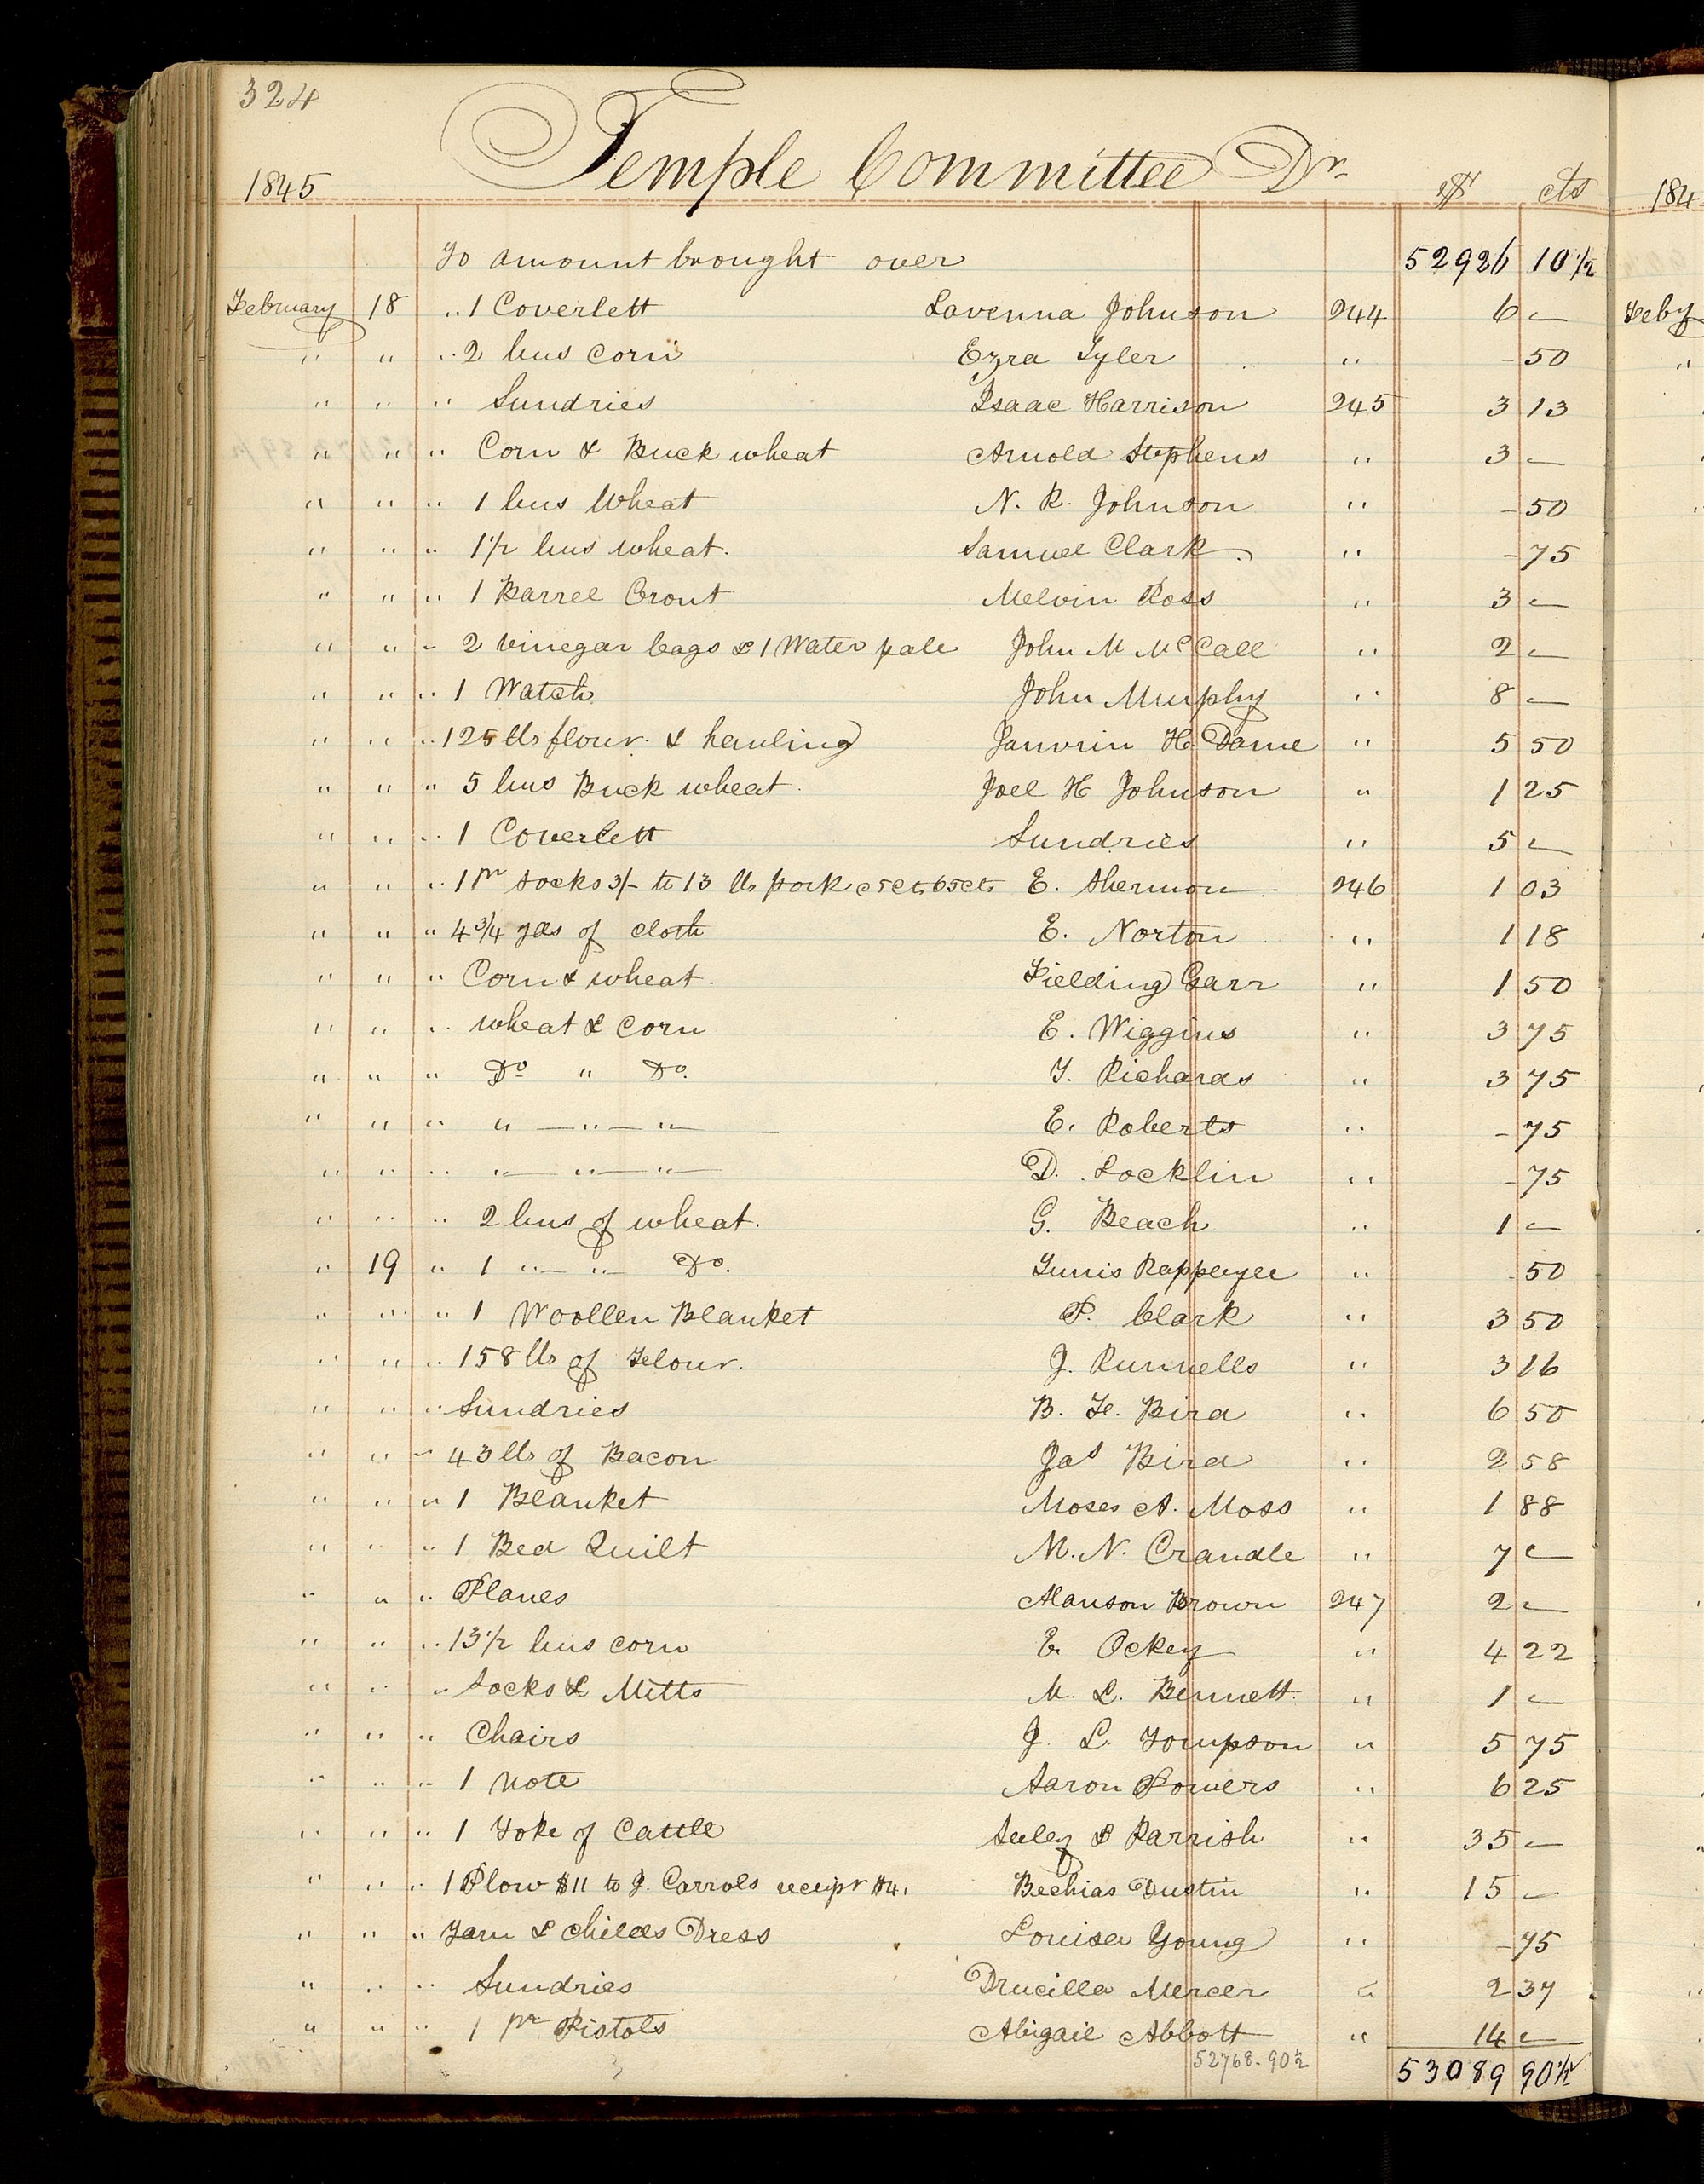 324
Temple Committee Dr.
1845 $ cts 184
To amount brought over 52926 10 1/2
February 18 " 1 Coverlett Lavenna Johnson 244 6 – Feby
" " " 2 bus Corn Ezra Tyler " – 50 "
" " " Sundries Isaac Harrison 245 3 13
" " " Corn & Buck wheat Arnold Stephens " 3 –
" " " 1 bus Wheat N. R. Johnson " – 50
" " " 1 1/2 bus wheat. Samuel Clark " – 75
" " " 1 Barrel Crout Melvin Ross " 3 –
" " " 2 vinegar bags & 1 Water pale John M McCall " 2 –
" " " 1 Watch John Murphy " 8 –
" " " 125 lbs flour. & hauling Janvrin H. Dame " 5 50
" " " 5 bus Buck wheat. Joel H Johnson " 1 25
" " " 1 Coverlett Sundries " 5 –
" " " 1 pr socks 3/- to 13 lbs pork 5 cts 65 cts E. Shermon 246 1 03
" " " 4 3/4 yds of cloth E. Norton " 1 18
" " " Corn & wheat. Fielding Garr " 1 50
" " " wheat & Corn E. Wiggins " 3 75
" " " Do " Do. Y. Richards " 3 75
" " " " — " — " — E. Roberts " – 75
" " " " — " — " — D. Locklin " – 75
" " " 2 bus of wheat. G. Beach " 1 –
" 19 " 1 " — " — Do. Tunis Rappleyee " 50
" " " 1 Woollen Blanket P. Clark " 3 50
" " " 158 lbs of Flour. J. Runnells " 3 16
" " " Sundries B. F. Bird " 6 50
" " " 43 lbs of Bacon Jas Bird " 2 58
" " " 1 Blanket Moses A. Moss " 1 88
" " " 1 Bed Quilt M. N. Crandle " 7 –
" " " Planes Alanson Brown 247 2 –
" " " 13 1/2 bus corn E. Ockey " 4 22
" " " Socks & Mitts M. L. Bennett. " 1 –
" " " Chairs J. L. Tompson " 5 75
" " " 1 note Aaron Powers " 6 25
" " " 1 Yoke of Cattle Seeley & Parrish " 35 –
" " " 1 Plow $11 to J. Carrols receipt $4. Bechias Dustin " 15 –
" " " Yarn & childs Dress Louisa Young " – 75
" " " Sundries Drucilla Mercer " 2 37
" " " 1 pr Pistols Abigail Abbott " 14 –
52768.90 1/2
53089 90 1/2